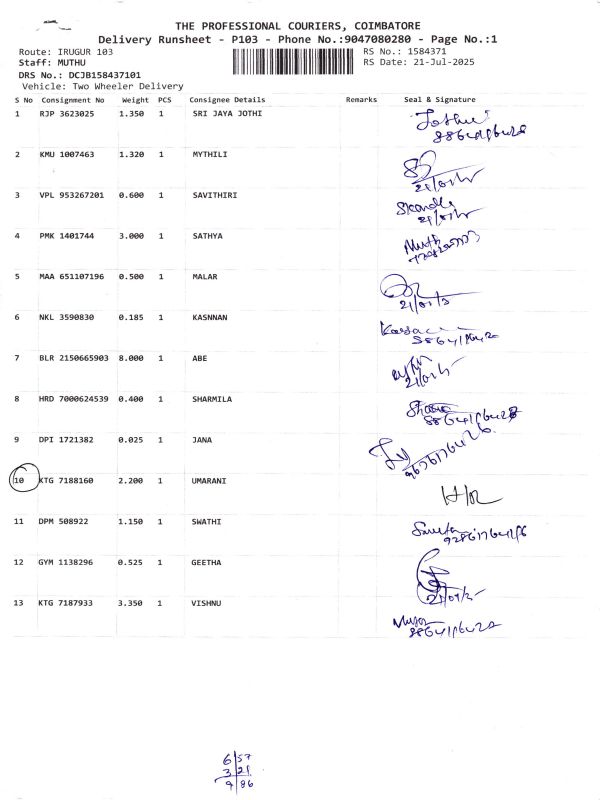 THE PROFESSIONAL COURIERS, COIMBATORE
Delivery Runsheet - P103 - Phone No.:9047080280 - Page No.:1
Route: IRUGUR 103
RS No.: 1584371
Staff: MUTHU
RS Date: 21-Jul-2025
DRS No.: DCJB158437101
Vehicle: Two Wheeler Delivery
S No Consignment No Weight PCS Consignee Details Remarks Seal & Signature
1 RJP 3623025 1.350 1 SRI JAYA JOTHI
2 KMU 1007463 1.320 1 MYTHILI
3 VPL 953267201 0.600 1 SAVITHIRI
4 PMK 1401744 3.000 1 SATHYA
5 MAA 651107196 0.500 1 MALAR
6 NKL 3590830 0.185 1 KASNNAN
7 BLR 2150665903 8.000 1 ABE
8 HRD 7000624539 0.400 1 SHARMILA
9 DPI 1721382 0.025 1 JANA
10 KTG 7188160 2.200 1 UMARANI
11 DPM 508922 1.150 1 SWATHI
12 GYM 1138296 0.525 1 GEETHA
13 KTG 7187933 3.350 1 VISHNU
6 57
3 21
9 86